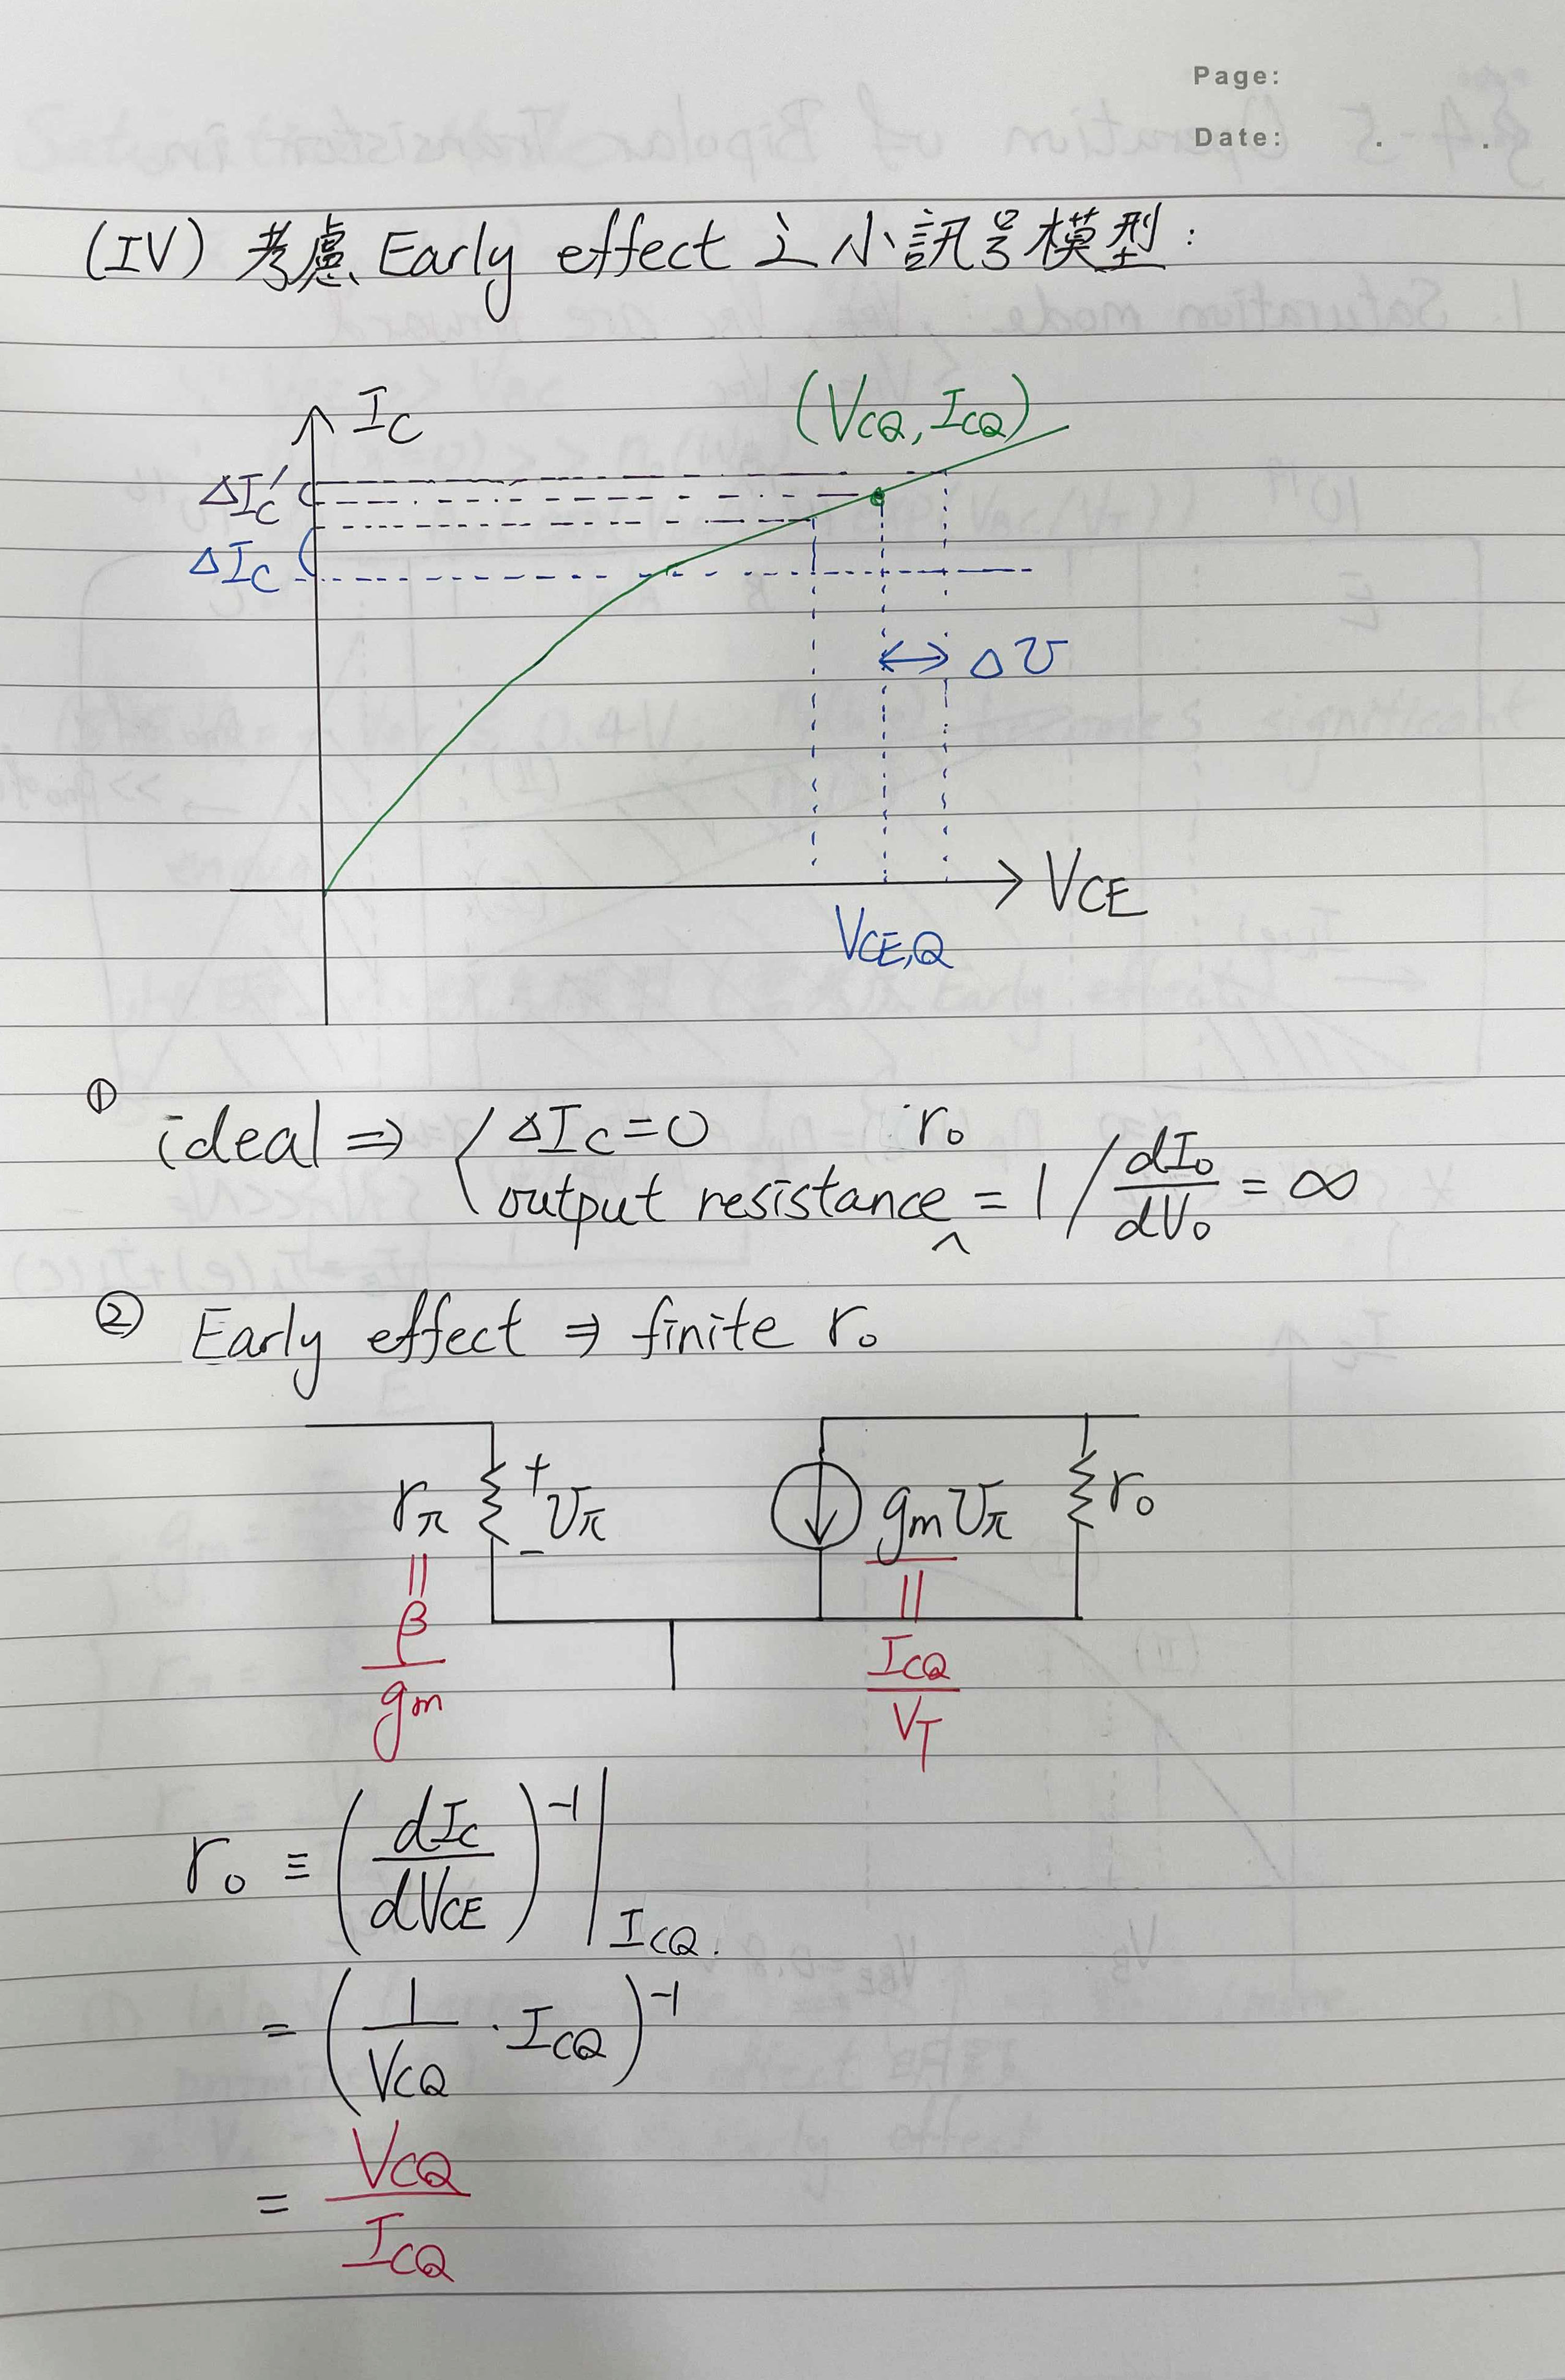 Page:
Date: . .
(IV) 考慮 Early effect 之小訊号模型:
I_C
(V_CQ, I_CQ)
ΔI_C'
ΔI_C
Δv
V_CE
V_CE,Q
① ideal ⇒ { ΔI_C = 0
output resistance r_o = 1 / dI_o/dV_o = ∞
② Early effect ⇒ finite r_o
r_π + v_π - g_m v_π r_o
= β/g_m
= I_CQ/V_T
r_o ≡ (dI_C/dV_CE)^-1 | I_CQ.
= (1/V_CQ · I_CQ)^-1
= V_CQ/I_CQ